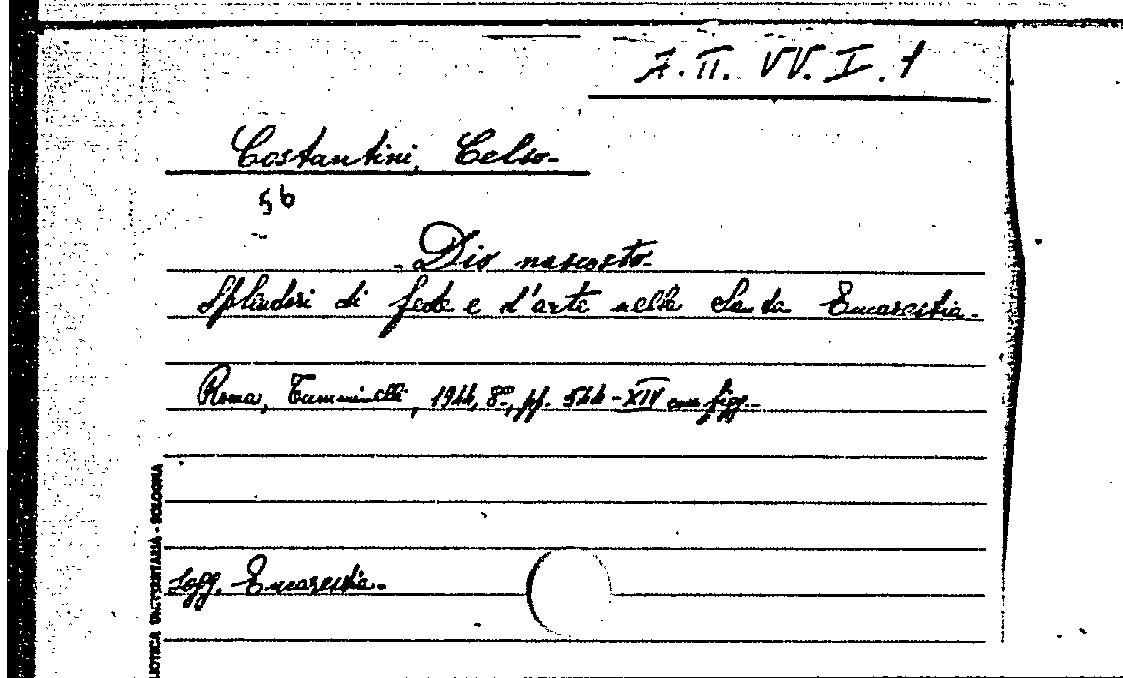 A. II. VV. I. 1
Costantini, Celso.
56
Dio nascosto.
Splendori di fede e d'arte nella Santa Eucarestia.
Roma, Tumminelli, 1944, 8º, pp. 544-XIV con figg.
Sogg. Eucarestia.
BLIOTECA UNIVERSITARIA - BOLOGNA